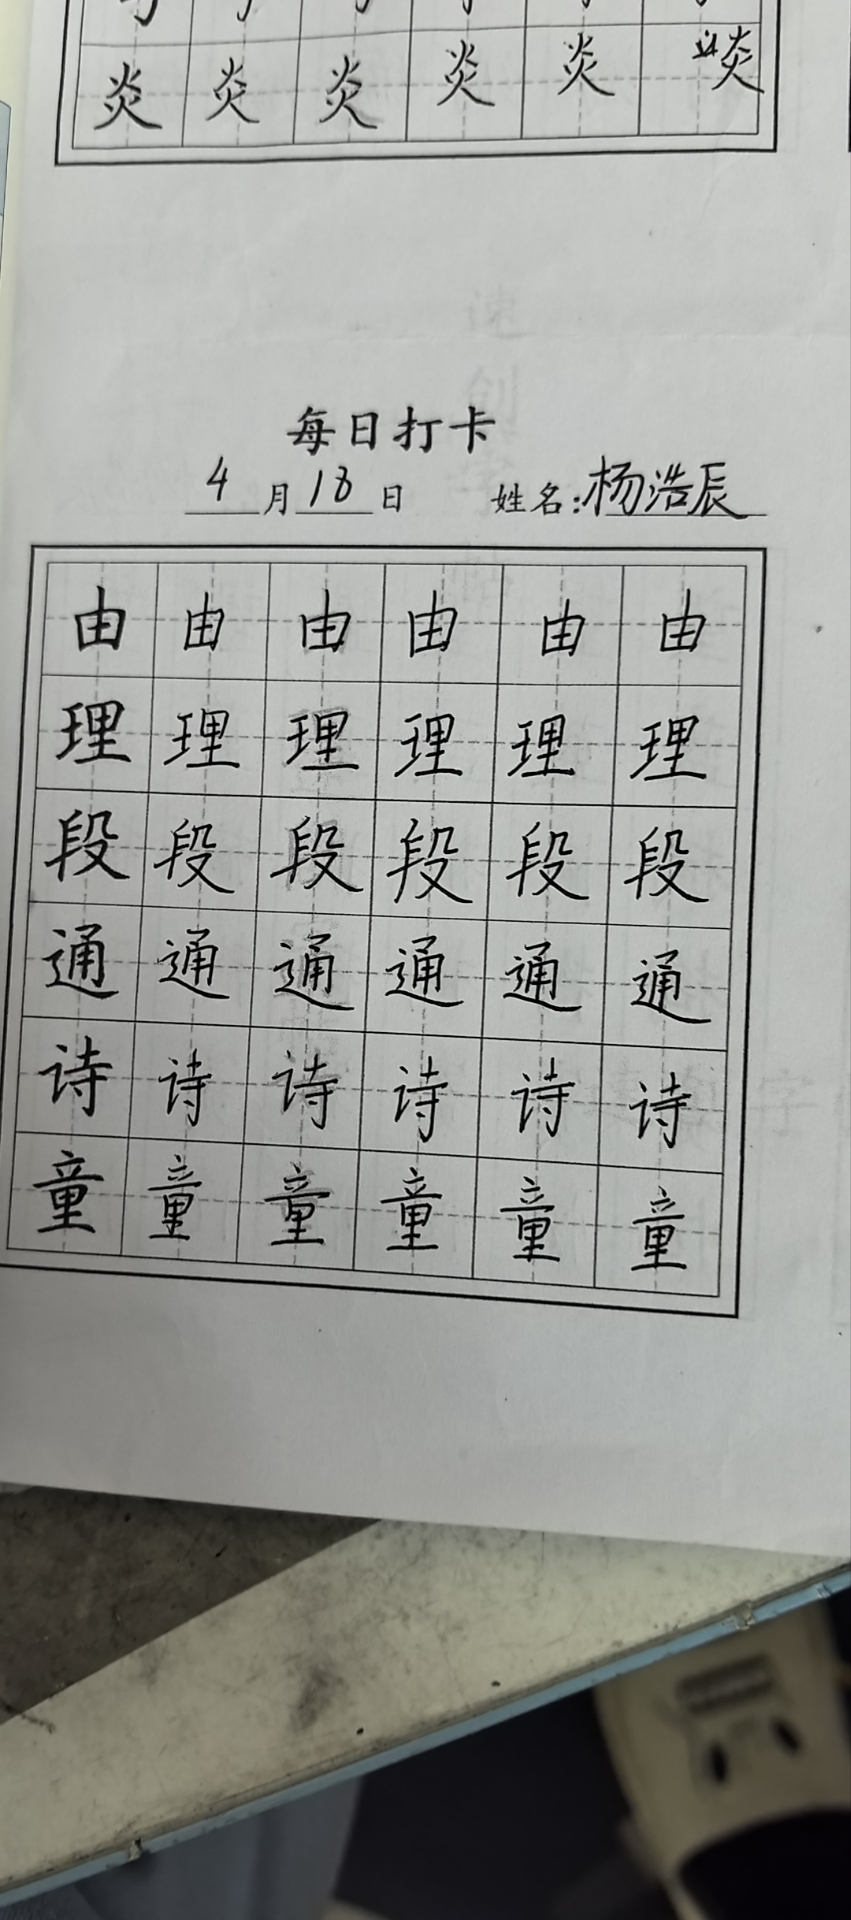 炎炎炎炎炎炎
每日打卡
4月18日 姓名:杨浩辰
由由由由由由
理理理理理理
段段段段段段
通通通通通通
诗诗诗诗诗诗
童童童童童童